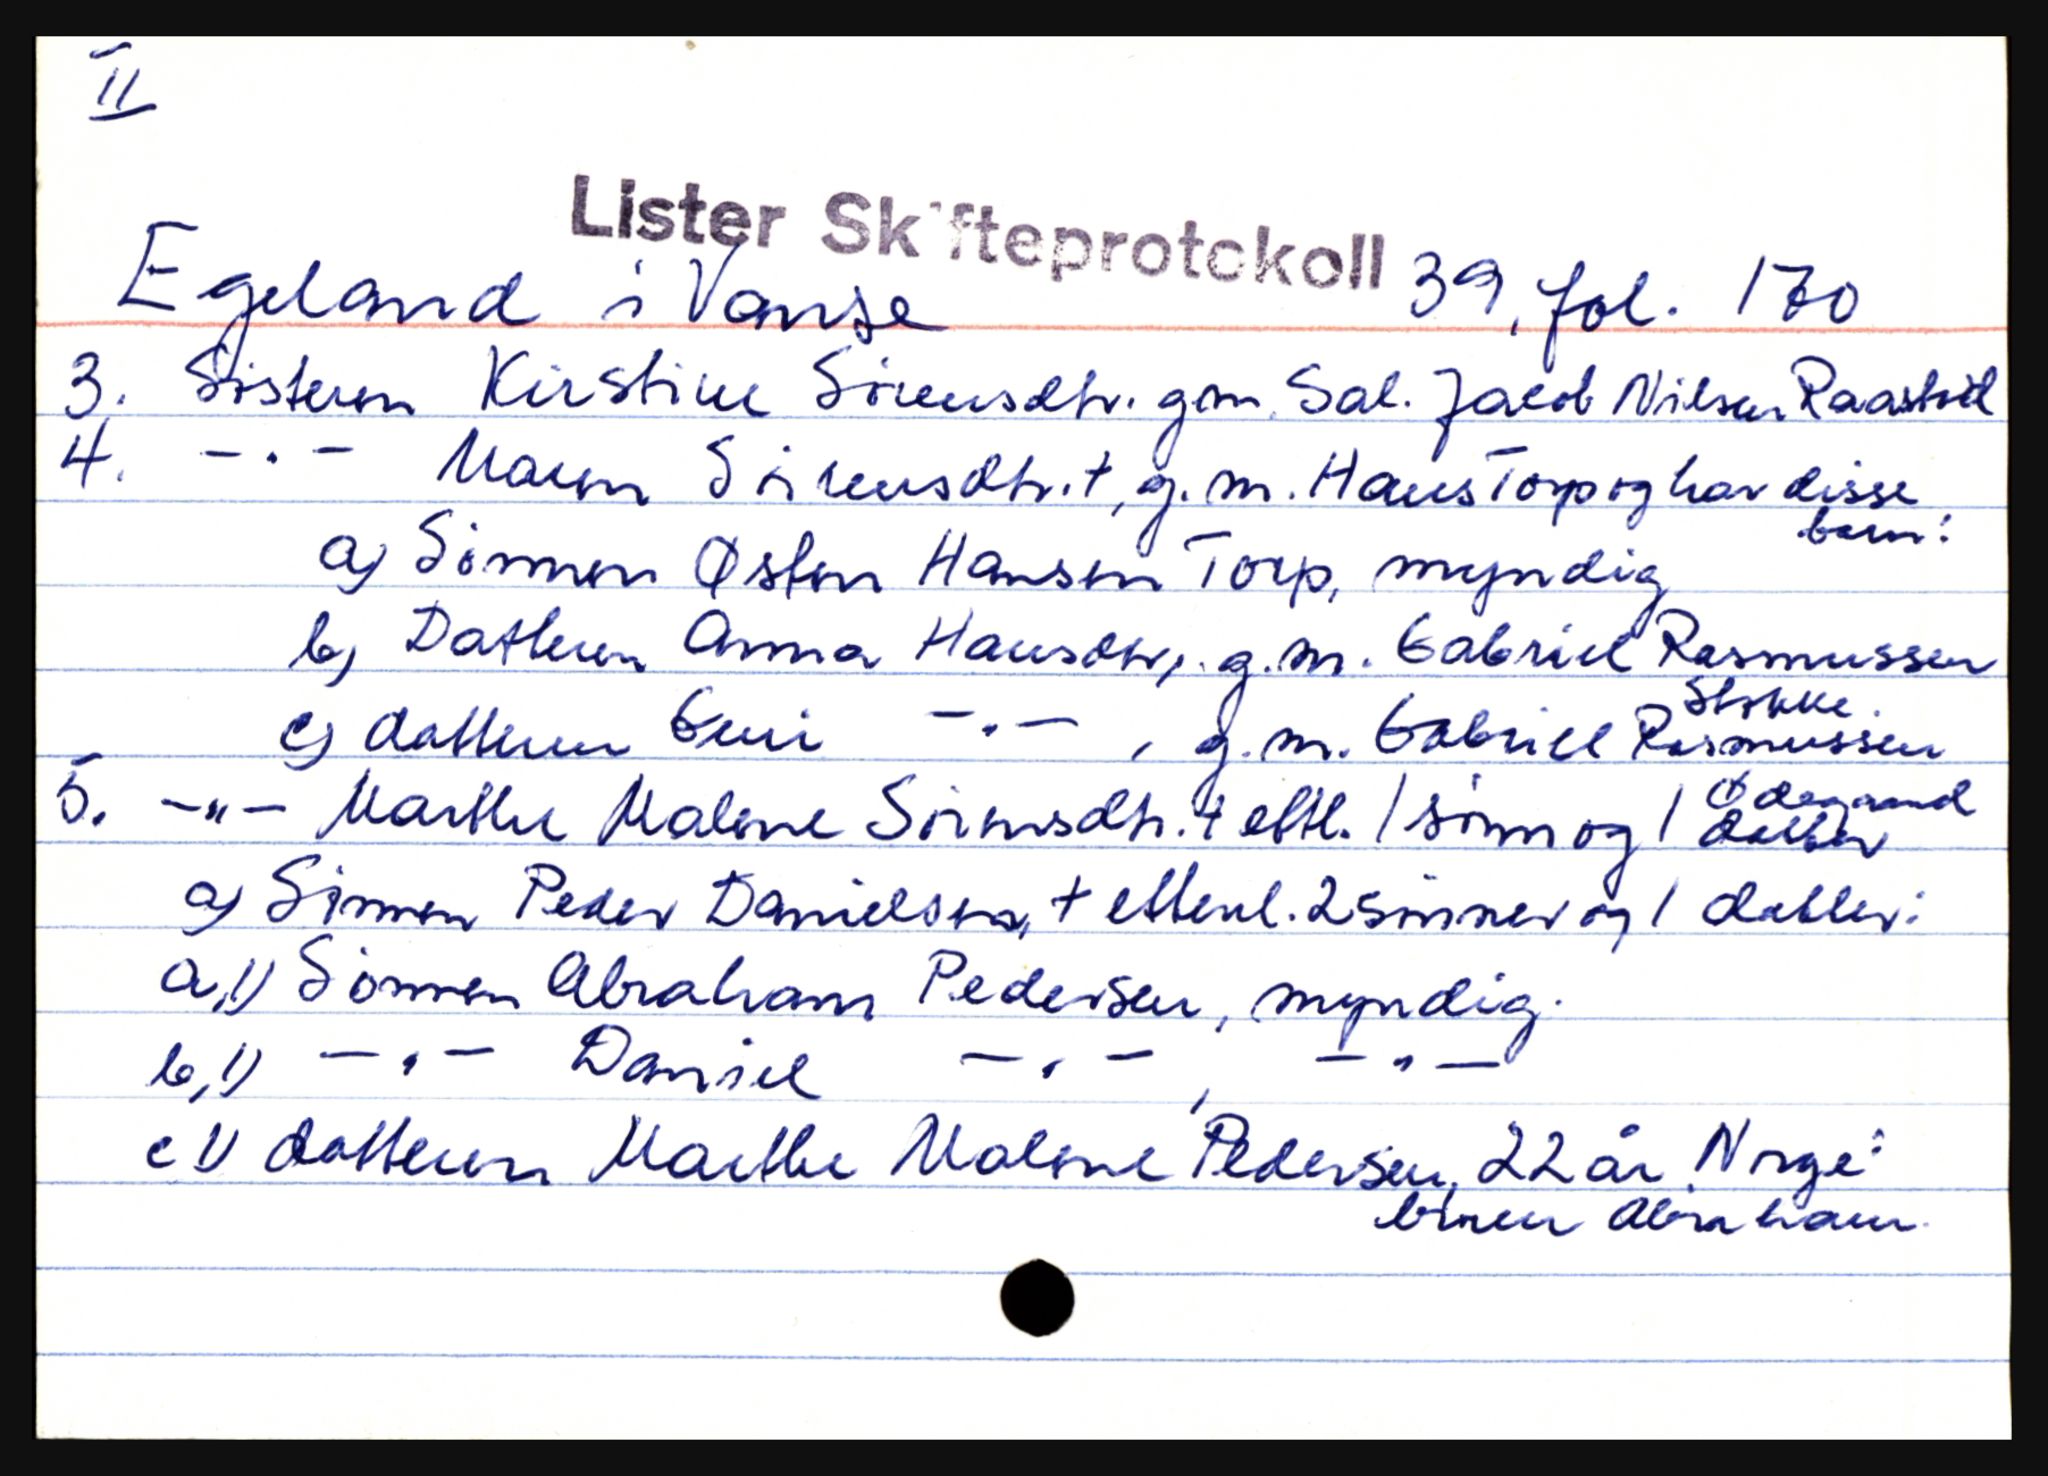 II
Lister Skifteprotokoll
Egeland i Vanse 39, fol. 170
3. Søsteren Kirstine Sörensdtr. gm. Sal. Jacob Nilsen Raastad
4. -"- Maren Sörensdtr. +, g.m. Hans Torp og har disse
barn:
a) Sönnen Østen Hansen Torp, myndig
b) Datteren Anna Hansdtr, g.m. Gabriel Rasmussen
Stokke.
c) datteren Guri -"-, g.m. Gabriel Rasmussen
Ødegaard
5. -"- Marthe Malene Sörensdtr. + eftl. 1 sönn og 1 datter
a) Sönnen Peder Danielsen, + etterl. 2 sönner og 1 datter:
a,1) Sönnen Abraham Pedersen, myndig.
b,1) -"- Daniel -"-, -"-
c 1) datteren Marthe Malene Pedersen, 22 år N
Abraham.